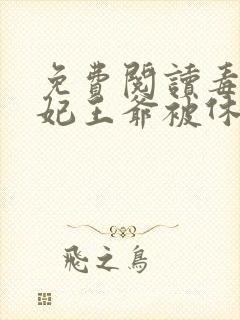 免費閱讀毒
妃王爺被休
飛之鳥